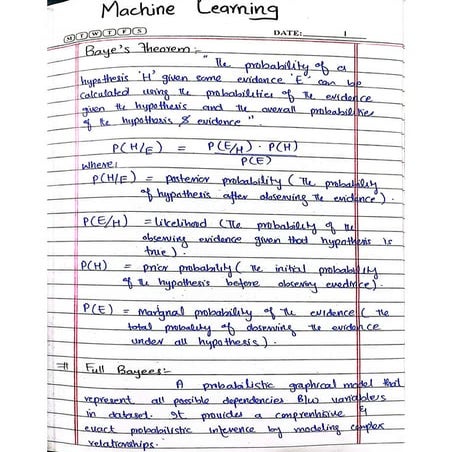 Machine Learning
M T W T F S DATE:
Baye's Theorem:-
"The probability of a
hypothesis 'H' given some evidence 'E' can be
calculated using the probabilities of the evidence
given the hypothesis and the overall probabilities
of the hypothesis & evidence"
P(H/E) = P(E/H) · P(H)
P(E)
where:
P(H/E) = posterior probability (The probability
of hypothesis after observing the evidence).
P(E/H) = likelihood (The probability of the
observing evidence given that hypothesis is
true).
P(H) = prior probability (the initial probability
of the hypothesis before observing evedince).
P(E) = marginal probability of the evidence (the
total probality of observing the evidence
under all hypothesis).
# Full Bayees:-
A probabilistic graphical model that
represent all possible dependencies B/w variablers
in dataset. It provides a comprenhisive &
exact probabilistic intevence by modeling complex
relationships.